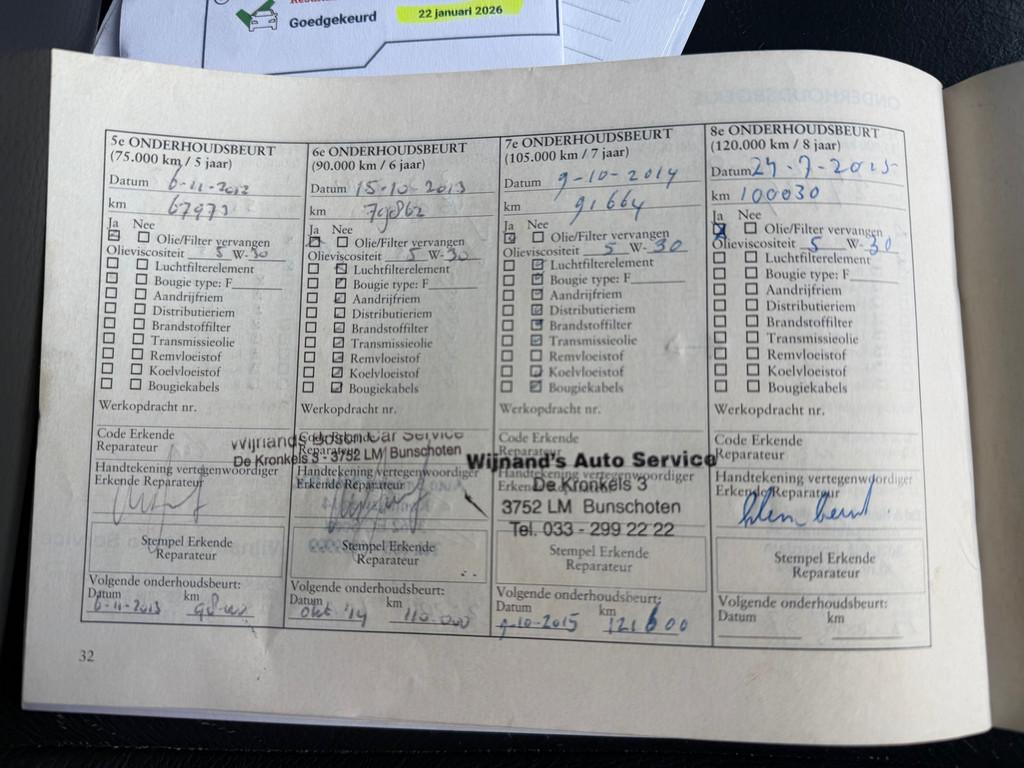 Goedgekeurd
22 januari 2026
5e ONDERHOUDSBEURT
(75.000 km / 5 jaar)
Datum 6-11-2012
km 67973
Ja Nee
Olie/Filter vervangen
Olieviscositeit 5 W-30
Luchtfilterelement
Bougie type: F
Aandrijfriem
Distributieriem
Brandstoffilter
Transmissieolie
Remvloeistof
Koelvloeistof
Bougiekabels
Werkopdracht nr.
Code Erkende
Reparateur
Handtekening vertegenwoordiger
Erkende Reparateur
Stempel Erkende
Reparateur
Volgende onderhoudsbeurt:
Datum km
6-11-2013
6e ONDERHOUDSBEURT
(90.000 km / 6 jaar)
Datum 15-10-2013
km 79862
Ja Nee
Olie/Filter vervangen
Olieviscositeit 5 W-30
Luchtfilterelement
Bougie type: F
Aandrijfriem
Distributieriem
Brandstoffilter
Transmissieolie
Remvloeistof
Koelvloeistof
Bougiekabels
Werkopdracht nr.
Code Erkende
Reparateur
Wijnands Bosch Car Service
De Kronkels 3 - 3752 LM Bunschoten
Handtekening vertegenwoordiger
Erkende Reparateur
Stempel Erkende
Reparateur
Volgende onderhoudsbeurt:
Datum km
okt '14 110.000
7e ONDERHOUDSBEURT
(105.000 km / 7 jaar)
Datum 9-10-2014
km 91664
Ja Nee
Olie/Filter vervangen
Olieviscositeit 5 W-30
Luchtfilterelement
Bougie type: F
Aandrijfriem
Distributieriem
Brandstoffilter
Transmissieolie
Remvloeistof
Koelvloeistof
Bougiekabels
Werkopdracht nr.
Code Erkende
Reparateur
Wijnand's Auto Service
Handtekening vertegenwoordiger
Erkende Reparateur
De Kronkels 3
3752 LM Bunschoten
Tel. 033 - 299 22 22
Stempel Erkende
Reparateur
Volgende onderhoudsbeurt:
Datum km
9-10-2015 121600
8e ONDERHOUDSBEURT
(120.000 km / 8 jaar)
Datum 24-7-2015
km 100030
Ja Nee
Olie/Filter vervangen
Olieviscositeit 5 W-30
Luchtfilterelement
Bougie type: F
Aandrijfriem
Distributieriem
Brandstoffilter
Transmissieolie
Remvloeistof
Koelvloeistof
Bougiekabels
Werkopdracht nr.
Code Erkende
Reparateur
Handtekening vertegenwoordiger
Erkende Reparateur
Stempel Erkende
Reparateur
Volgende onderhoudsbeurt:
Datum km
32